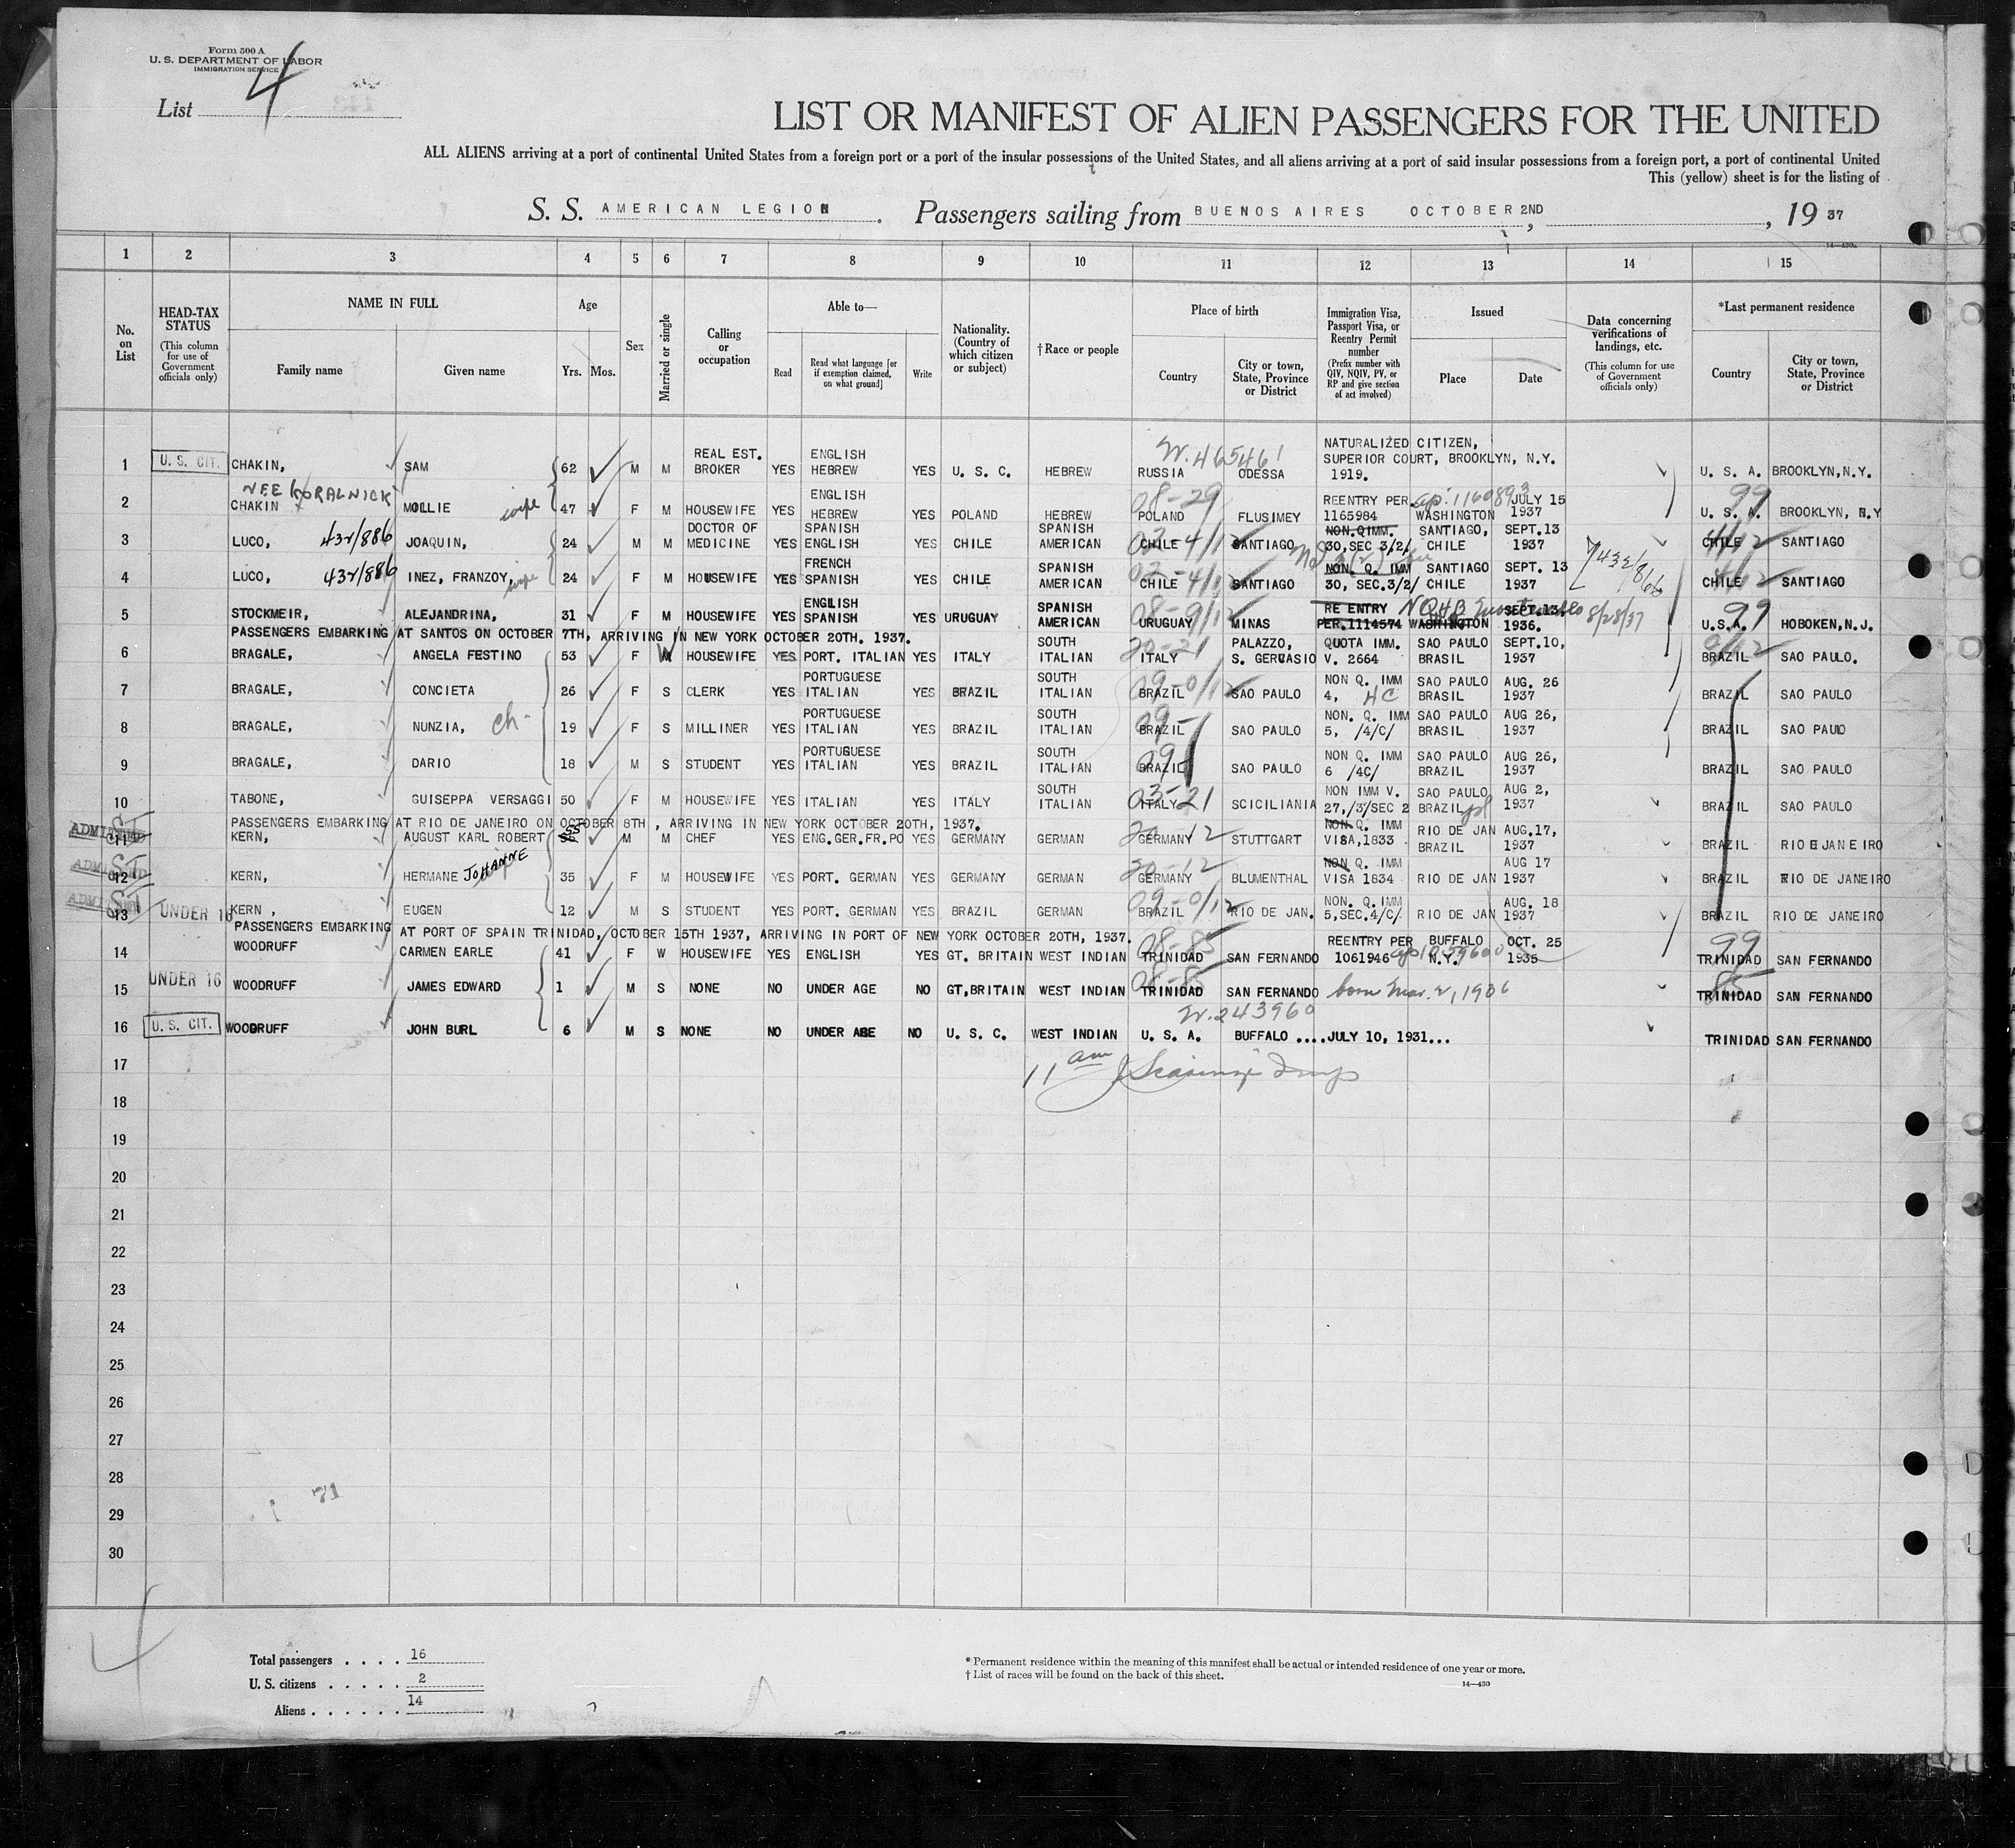 Form 500 A
U. S. DEPARTMENT OF LABOR
IMMIGRATION SERVICE
List 4
LIST OR MANIFEST OF ALIEN PASSENGERS FOR THE UNITED
ALL ALIENS arriving at a port of continental United States from a foreign port or a port of the insular possessions of the United States, and all aliens arriving at a port of said insular possessions from a foreign port, a port of continental United
This (yellow) sheet is for the listing of
S. S. AMERICAN LEGION. Passengers sailing from BUENOS AIRES OCTOBER 2ND, , 19 37
14—430
1 2 3 4 5 6 7 8 9 10 11 12 13 14 15
No. on List HEAD-TAX STATUS (This column for use of Government officials only) NAME IN FULL Family name Given name Age Yrs. Mos. Sex Married or single Calling or occupation Able to— Read Read what language [or if exemption claimed, on what ground] Write Nationality. (Country of which citizen or subject) † Race or people Place of birth Country City or town, State, Province or District Immigration Visa, Passport Visa, or Reentry Permit number (Prefix number with QIV, NQIV, PV, or RP and give section of act involved) Issued Place Date Data concerning verifications of landings, etc. (This column for use of Government officials only) *Last permanent residence Country City or town, State, Province or District
1 U. S. CIT. CHAKIN, SAM 62 M M REAL EST. BROKER YES ENGLISH HEBREW YES U. S. C. HEBREW W. 465461 RUSSIA ODESSA NATURALIZED CITIZEN, SUPERIOR COURT, BROOKLYN, N.Y. 1919. U. S. A. BROOKLYN, N.Y.
2 NEE KORALNICK CHAKIN MOLLIE wife 47 F M HOUSEWIFE YES ENGLISH HEBREW YES POLAND HEBREW 08-29 POLAND FLUSIMEY REENTRY PER. 1165984 WASHINGTON JULY 15 1937 99 U. S. A. BROOKLYN, N.Y
3 LUCO, 432/886 JOAQUIN, 24 M M DOCTOR OF MEDICINE YES SPANISH ENGLISH YES CHILE SPANISH AMERICAN CHILE SANTIAGO NON.QIMM. 30,SEC 3/2/ SANTIAGO, CHILE SEPT.13 1937 CHILE SANTIAGO
4 LUCO, 432/886 INEZ, FRANZOY wife 24 F M HOUSEWIFE YES FRENCH SPANISH YES CHILE SPANISH AMERICAN CHILE SANTIAGO NON. Q. IMM 30, SEC.3/2/ SANTIAGO CHILE SEPT. 13 1937 CHILE SANTIAGO
5 STOCKMEIR, ALEJANDRINA, 31 F M HOUSEWIFE YES ENGLISH SPANISH YES URUGUAY SPANISH AMERICAN URUGUAY MINAS RE ENTRY PER.1114574 WASHINGTON SEPT.13, 1936. 8/28/37 99 U.S.A. HOBOKEN, N.J.
PASSENGERS EMBARKING AT SANTOS ON OCTOBER 7TH, ARRIVING IN NEW YORK OCTOBER 20TH. 1937.
6 BRAGALE, ANGELA FESTINO 53 F W HOUSEWIFE YES PORT. ITALIAN YES ITALY SOUTH ITALIAN 20-21 ITALY PALAZZO, S. GERVASIO QUOTA IMM. V. 2664 SAO PAULO BRASIL SEPT.10, 1937 BRAZIL SAO PAULO.
7 BRAGALE, CONCIETA 26 F S CLERK YES PORTUGUESE ITALIAN YES BRAZIL SOUTH ITALIAN BRAZIL SAO PAULO NON Q. IMM 4, 4C SAO PAULO BRASIL AUG. 26 1937 BRAZIL SAO PAULO
8 BRAGALE, NUNZIA, ch- 19 F S MILLINER YES PORTUGUESE ITALIAN YES BRAZIL SOUTH ITALIAN BRAZIL SAO PAULO NON. Q. IMM 5, /4/C/ SAO PAULO BRASIL AUG 26, 1937 BRAZIL SAO PAULO
9 BRAGALE, DARIO 18 M S STUDENT YES PORTUGUESE ITALIAN YES BRAZIL SOUTH ITALIAN BRAZIL SAO PAULO NON Q. IMM 6 /4C/ SAO PAULO BRAZIL AUG 26, 1937 BRAZIL SAO PAULO
10 TABONE, GUISEPPA VERSAGGI 50 F M HOUSEWIFE YES ITALIAN YES ITALY SOUTH ITALIAN 03-21 ITALY SCICILIANIA NON IMM V. 27,/3/SEC 2 SAO PAULO BRAZIL AUG 2, 1937 BRAZIL SAO PAULO
PASSENGERS EMBARKING AT RIO DE JANEIRO ON OCTOBER 8TH , ARRIVING IN NEW YORK OCTOBER 20TH, 1937.
ADMITTED 11 KERN, AUGUST KARL ROBERT 55 M M CHEF YES ENG.GER.FR.PO YES GERMANY GERMAN GERMANY STUTTGART NON Q. IMM VISA,1833 RIO DE JAN BRAZIL AUG.17, 1937 BRAZIL RIO DE JANEIRO
ADMITTED 12 KERN, HERMANE JOHANNE 35 F M HOUSEWIFE YES PORT. GERMAN YES GERMANY GERMAN 20-12 GERMANY BLUMENTHAL NON Q. IMM VISA 1834 RIO DE JAN AUG 17 1937 BRAZIL RIO DE JANEIRO
ADMITTED 13 UNDER 16 KERN , EUGEN 12 M S STUDENT YES PORT. GERMAN YES BRAZIL GERMAN BRAZIL RIO DE JAN. NON. Q. IMM 5,SEC.4/C/ RIO DE JAN AUG. 18 1937 BRAZIL RIO DE JANEIRO
PASSENGERS EMBARKING AT PORT OF SPAIN TRINIDAD, OCTOBER 15TH 1937, ARRIVING IN PORT OF NEW YORK OCTOBER 20TH, 1937.
14 WOODRUFF CARMEN EARLE 41 F W HOUSEWIFE YES ENGLISH YES GT. BRITAIN WEST INDIAN 08-85 TRINIDAD SAN FERNANDO REENTRY PER 1061946 BUFFALO N.Y. OCT. 25 1935 99 TRINIDAD SAN FERNANDO
15 UNDER 16 WOODRUFF JAMES EDWARD 1 M S NONE NO UNDER AGE NO GT,BRITAIN WEST INDIAN 08-85 TRINIDAD SAN FERNANDO born Mar. 2, 1936 85 TRINIDAD SAN FERNANDO
16 U. S. CIT. WOODRUFF JOHN BURL 6 M S NONE NO UNDER AGE NO U. S. C. WEST INDIAN W. 243960 U. S. A. BUFFALO ....JULY 10, 1931... TRINIDAD SAN FERNANDO
17 11 am
18
19
20
21
22
23
24
25
26
27
28
29
30
Total passengers . . . . 16
U. S. citizens . . . . . 2
Aliens . . . . . . 14
* Permanent residence within the meaning of this manifest shall be actual or intended residence of one year or more.
† List of races will be found on the back of this sheet.
14—430